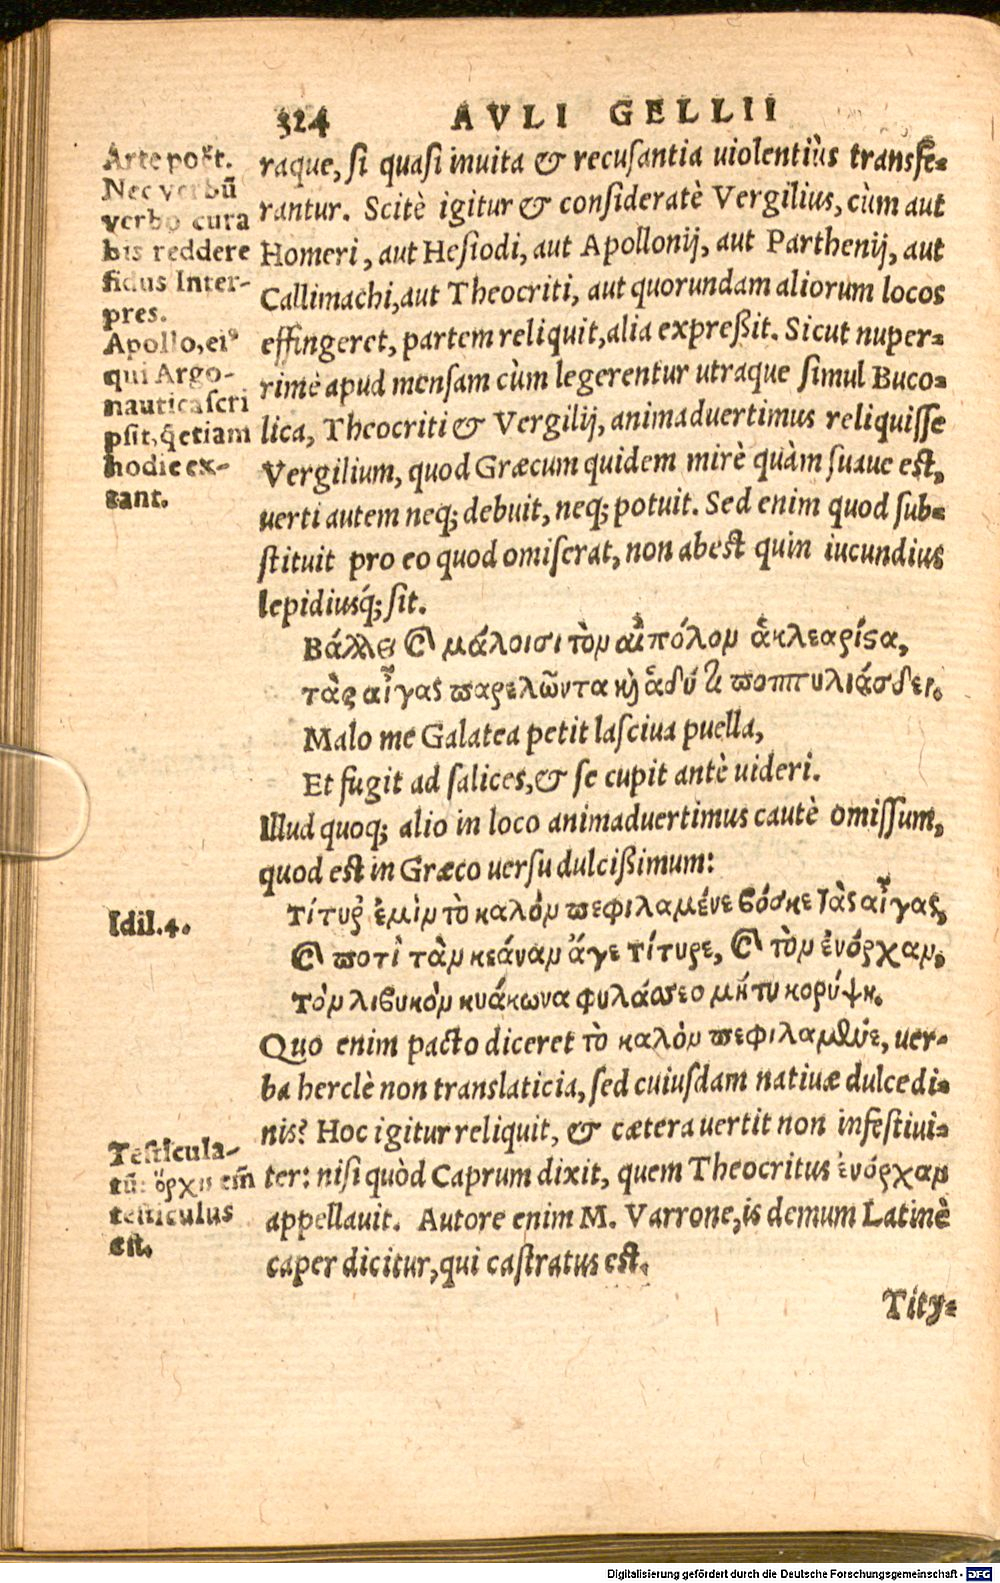 324 AVLI GELLII
Arte poët.
Nec verbũ
verbo cura
bis reddere
fidus Inter-
pres.
Apollo, eiꝰ
qui Argo-
nautica scri
psit, q̃ etiam
hodie ex-
tant.
raque, si quasi inuita & recusantia uiolentiùs transfe-
rantur. Scitè igitur & consideratè Vergilius, cùm aut
Homeri, aut Hesiodi, aut Apollonij, aut Parthenij, aut
Callimachi, aut Theocriti, aut quorundam aliorum locos
effingeret, partem reliquit, alia expreßit. Sicut nuper-
rimè apud mensam cùm legerentur utraque simul Buco-
lica, Theocriti & Vergilij, animaduertimus reliquisse
Vergilium, quod Græcum quidem mirè quàm suaue est,
uerti autem neq; debuit, neq; potuit. Sed enim quod sub-
stituit pro eo quod omiserat, non abest quin iucundius
lepidiusq́; sit.
Βάλλει καὶ μάλοισι τὸν αἰπόλον ἁ κλεαρίϛα,
τὰς αἶγας παρελῶντα κὶ ἁδύ τι ποππυλιάσδει.
Malo me Galatea petit lasciua puella,
Et fugit ad salices, & se cupit antè uideri.
Illud quoq; alio in loco animaduertimus cautè omissum,
quod est in Græco uersu dulcißimum:
Idil. 4.
τίτυρ' ἐμὶν τὸ καλὸν πεφιλαμένε βόσκε τὰς αἶγας,
καὶ ποτὶ τὰν κράναν ἄγε τίτυρε, καὶ τὸν ἐνόρχαν,
τὸν λιβυκὸν κνάκωνα φυλάσσεο μή τυ κορύψῃ.
Quo enim pacto diceret τὸ καλὸν πεφιλαμένε, uer-
ba herclè non translaticia, sed cuiusdam natiuæ dulcedi-
nis? Hoc igitur reliquit, & cætera uertit non infestiui-
ter: nisi quòd Caprum dixit, quem Theocritus ἐνόρχαν
appellauit. Autore enim M. Varrone, is demum Latinè
caper dicitur, qui castratus est.
Testicula-
tũ: ὄρχις em̃
testiculus
est.
Tity-
Digitalisierung gefördert durch die Deutsche Forschungsgemeinschaft - DFG